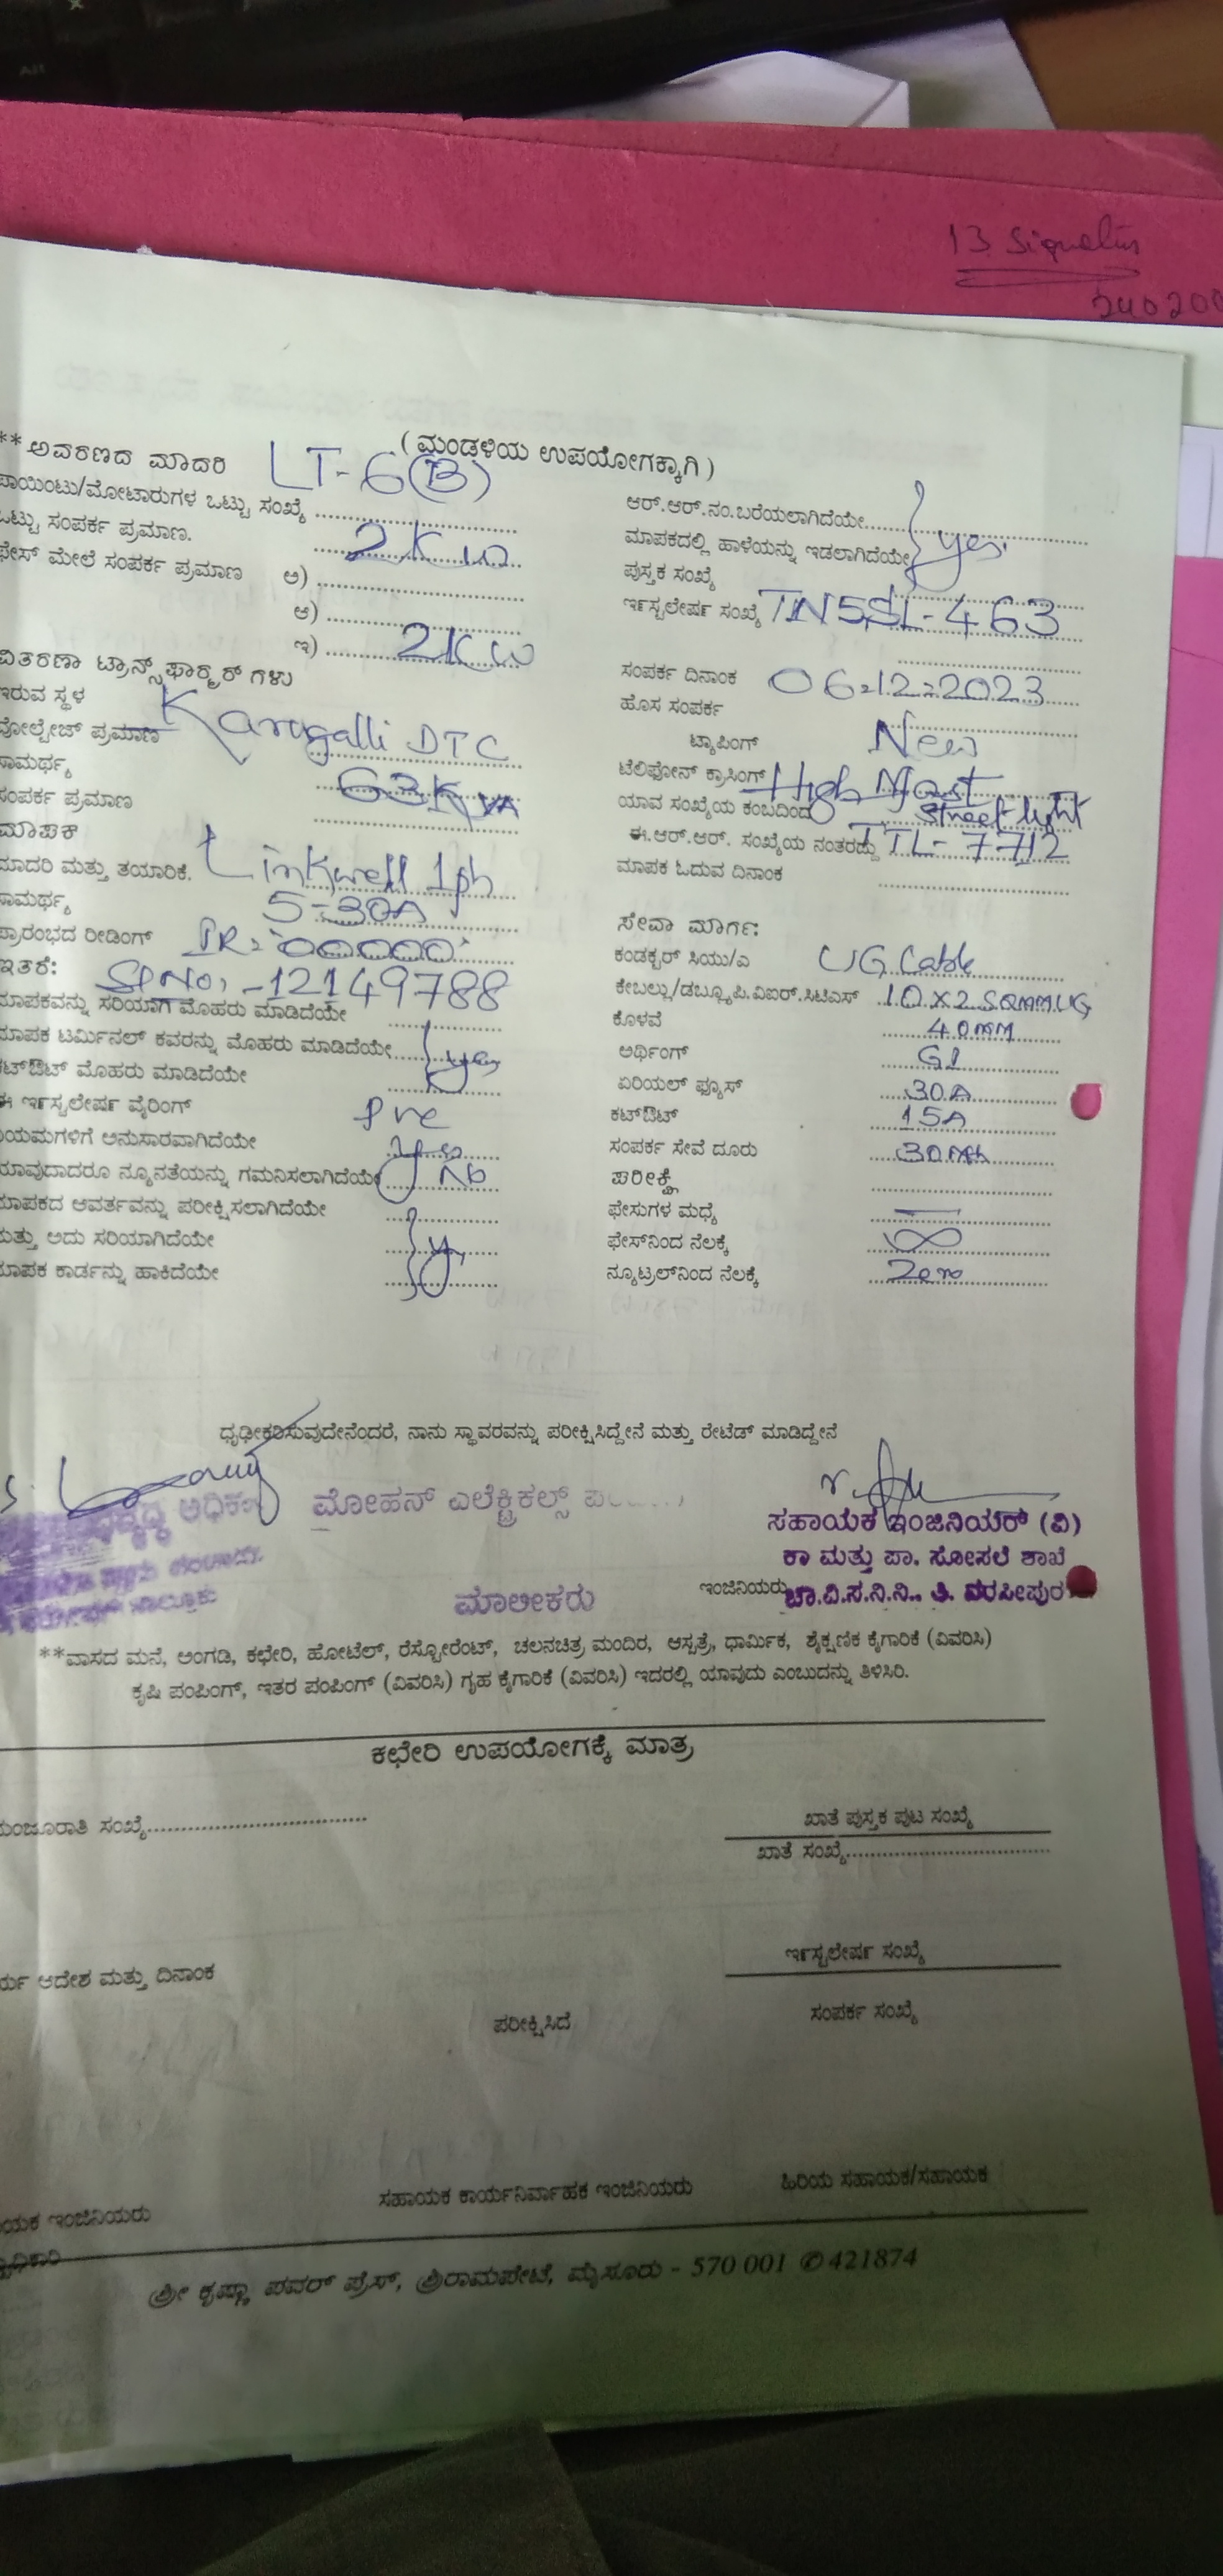 13 Signatur
** ಅವರಣದ ಮಾದರಿ LT-6(B)
(ಮಂಡಳಿಯ ಉಪಯೋಗಕ್ಕಾಗಿ)
ಪಾಯಿಂಟು/ಮೋಟಾರುಗಳ ಒಟ್ಟು ಸಂಖ್ಯೆ
ಒಟ್ಟು ಸಂಪರ್ಕ ಪ್ರಮಾಣ. 2 Kw
ಫೇಸ್ ಮೇಲೆ ಸಂಪರ್ಕ ಪ್ರಮಾಣ ಅ)
ಆ)
ಇ) 2Kw
ವಿತರಣಾ ಟ್ರಾನ್ಸ್‌ಫಾರ್ಮರ್ ಗಳು
ಇರುವ ಸ್ಥಳ Karugalli DTC
ವೋಲ್ಟೇಜ್ ಪ್ರಮಾಣ
ಸಾಮರ್ಥ್ಯ 63KVA
ಸಂಪರ್ಕ ಪ್ರಮಾಣ
ಮಾಪಕ
ಮಾದರಿ ಮತ್ತು ತಯಾರಿಕೆ. Linkwell 1ph
ಸಾಮರ್ಥ್ಯ 5-30A
ಪ್ರಾರಂಭದ ರೀಡಿಂಗ್ IR=00000
ಇತರೆ: Sl No:-12149788
ಮಾಪಕವನ್ನು ಸರಿಯಾಗಿ ಮೊಹರು ಮಾಡಿದೆಯೇ
ಮಾಪಕ ಟರ್ಮಿನಲ್ ಕವರನ್ನು ಮೊಹರು ಮಾಡಿದೆಯೇ yes
ಕಟ್‌ಔಟ್ ಮೊಹರು ಮಾಡಿದೆಯೇ
ಈ ಇನ್ಸ್ಟಲೇಷನ್ ವೈರಿಂಗ್ Pvc
ನಿಯಮಗಳಿಗೆ ಅನುಸಾರವಾಗಿದೆಯೇ yes
ಯಾವುದಾದರೂ ನ್ಯೂನತೆಯನ್ನು ಗಮನಿಸಲಾಗಿದೆಯೇ No
ಮಾಪಕದ ಆವರ್ತವನ್ನು ಪರೀಕ್ಷಿಸಲಾಗಿದೆಯೇ
ಮತ್ತು ಅದು ಸರಿಯಾಗಿದೆಯೇ
ಮಾಪಕ ಕಾರ್ಡನ್ನು ಹಾಕಿದೆಯೇ
ಆರ್.ಆರ್.ನಂ.ಬರೆಯಲಾಗಿದೆಯೇ
ಮಾಪಕದಲ್ಲಿ ಹಾಳೆಯನ್ನು ಇಡಲಾಗಿದೆಯೇ yes
ಪುಸ್ತಕ ಸಂಖ್ಯೆ
ಇನ್ಸ್ಟಲೇಷನ್ ಸಂಖ್ಯೆ TN5SL-463
ಸಂಪರ್ಕ ದಿನಾಂಕ 06-12-2023
ಹೊಸ ಸಂಪರ್ಕ
ಟ್ಯಾಪಿಂಗ್ New
ಟೆಲಿಫೋನ್ ಕ್ರಾಸಿಂಗ್ High Mast
ಯಾವ ಸಂಖ್ಯೆಯ ಕಂಬದಿಂದ Street light
ಈ.ಆರ್.ಆರ್. ಸಂಖ್ಯೆಯ ನಂತರದ್ದು TTL-7712
ಮಾಪಕ ಓದುವ ದಿನಾಂಕ
ಸೇವಾ ಮಾರ್ಗ:
ಕಂಡಕ್ಟರ್ ಸಿಯು/ಎ UG Cable
ಕೇಬಲ್ಲು/ಡಬ್ಲ್ಯೂ.ಪಿ.ವಿಐರ್.ಸಿಟಿಎಸ್ 10x2 SQMM UG
ಕೊಳವೆ 40mm
ಅರ್ಥಿಂಗ್ GI
ಏರಿಯಲ್ ಫ್ಯೂಸ್ 30A
ಕಟ್‌ಔಟ್ 15A
ಸಂಪರ್ಕ ಸೇವೆ ದೂರು
ಪರೀಕ್ಷೆ
ಫೇಸುಗಳ ಮಧ್ಯೆ —
ಫೇಸ್‌ನಿಂದ ನೆಲಕ್ಕೆ ∞
ನ್ಯೂಟ್ರಲ್‌ನಿಂದ ನೆಲಕ್ಕೆ Zero
ಧೃಢೀಕರಿಸುವುದೇನೆಂದರೆ, ನಾನು ಸ್ಥಾವರವನ್ನು ಪರೀಕ್ಷಿಸಿದ್ದೇನೆ ಮತ್ತು ರೇಟೆಡ್ ಮಾಡಿದ್ದೇನೆ
ಮೋಹನ್ ಎಲೆಕ್ಟ್ರಿಕಲ್ಸ್
ಮಾಲೀಕರು
ಸಹಾಯಕ ಇಂಜಿನಿಯರ್ (ವಿ)
ಕಾ ಮತ್ತು ಪಾ. ಸೋಸಲೆ ಶಾಖೆ
ಇಂಜಿನಿಯರು ಚಾ.ವಿ.ಸ.ನಿ.ನಿ., ತಿ. ನರಸೀಪುರ
**ವಾಸದ ಮನೆ, ಅಂಗಡಿ, ಕಛೇರಿ, ಹೋಟೆಲ್, ರೆಸ್ಟೋರೆಂಟ್, ಚಲನಚಿತ್ರ ಮಂದಿರ, ಆಸ್ಪತ್ರೆ, ಧಾರ್ಮಿಕ, ಶೈಕ್ಷಣಿಕ ಕೈಗಾರಿಕೆ (ವಿವರಿಸಿ)
ಕೃಷಿ ಪಂಪಿಂಗ್, ಇತರ ಪಂಪಿಂಗ್ (ವಿವರಿಸಿ) ಗೃಹ ಕೈಗಾರಿಕೆ (ವಿವರಿಸಿ) ಇದರಲ್ಲಿ ಯಾವುದು ಎಂಬುದನ್ನು ತಿಳಿಸಿರಿ.
ಕಛೇರಿ ಉಪಯೋಗಕ್ಕೆ ಮಾತ್ರ
ಮಂಜೂರಾತಿ ಸಂಖ್ಯೆ
ಖಾತೆ ಪುಸ್ತಕ ಪುಟ ಸಂಖ್ಯೆ
ಖಾತೆ ಸಂಖ್ಯೆ
ಇನ್ಸ್ಟಲೇಷನ್ ಸಂಖ್ಯೆ
ಆದೇಶ ಮತ್ತು ದಿನಾಂಕ
ಪರೀಕ್ಷಿಸಿದೆ
ಸಂಪರ್ಕ ಸಂಖ್ಯೆ
ಇಂಜಿನಿಯರು
ಸಹಾಯಕ ಕಾರ್ಯನಿರ್ವಾಹಕ ಇಂಜಿನಿಯರು
ಹಿರಿಯ ಸಹಾಯಕ/ಸಹಾಯಕ
ಶ್ರೀ ಕೃಷ್ಣಾ ಪವರ್ ಪ್ರೆಸ್, ಶ್ರೀರಾಮಪೇಟೆ, ಮೈಸೂರು - 570 001 ✆ 421874